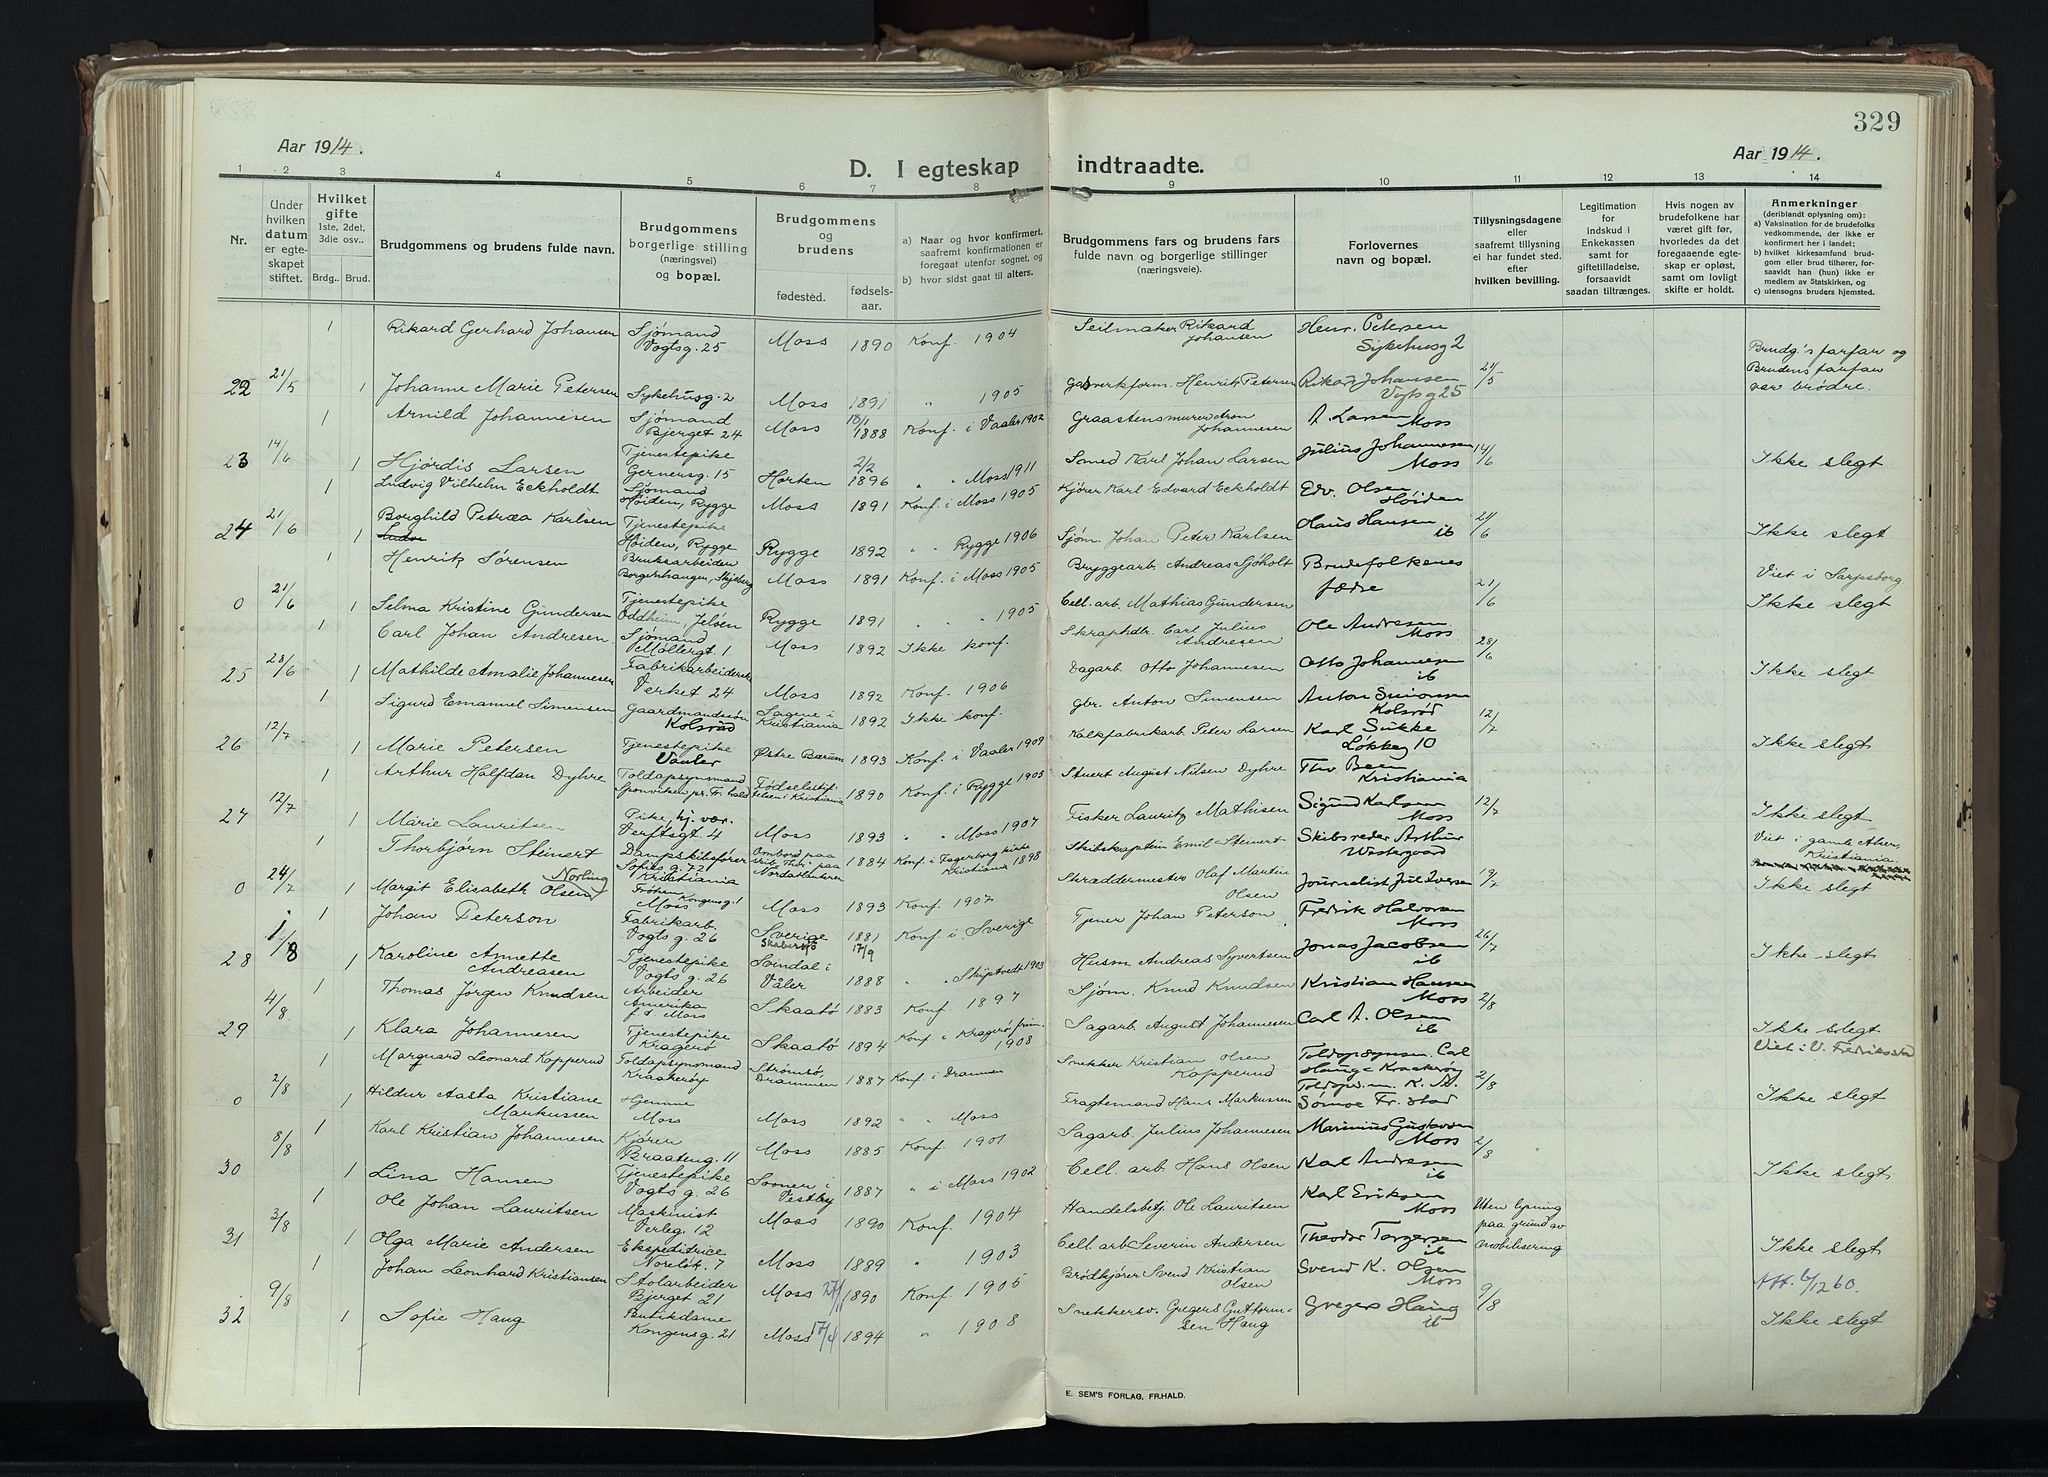 329
Aar 1914.
Aar 1914.
D. I egteskap indtraadte.
1 2 3 4 5 6 7 8 9 10 11 12 13 14
Nr.
Under hvilken datum er egteskapet stiftet.
Hvilket gifte 1ste, 2det, 3die osv..
Brdg.. Brud.
Brudgommens og brudens fulde navn.
Brudgommens borgerlige stilling (næringsvei) og bopæl.
Brudgommens og brudens
fødested.
fødselsaar.
a) Naar og hvor konfirmert, saafremt konfirmationen er foregaat utenfor sognet, og
b) hvor sidst gaat til alters.
Brudgommens fars og brudens fars fulde navn og borgerlige stillinger (næringsveie).
Forlovernes navn og bopæl.
Tillysningsdagene eller saafremt tillysning ei har fundet sted, efter hvilken bevilling.
Legitimation for indskud i Enkekassen samt for giftetilladelse, forsaavidt saadan tiltrænges.
Hvis nogen av brudefolkene har været gift før, hvorledes da det foregaaende egteskap er opløst, samt om lovligt skifte er holdt.
Anmerkninger (deriblandt oplysning om):
a) Vaksination for de brudefolks vedkommende, der ikke er konfirmert her i landet;
b) hvilket kirkesamfund brudgom eller brud tilhører, forsaavidt han (hun) ikke er medlem av Statskirken, og
c) utensogns bruders hjemsted.
1 Rikard Gerhard Johansen Sjømand Vogtsg. 25 Moss 1890 Konf. 1904 Seilmaker Rikard Johansen Henr. Petersen Sykehusg 2
22 21/5 1 Johanne Marie Petersen Sykehusg. 2 Moss 1891 " 1905 Gasverkform. Henrik Petersen Rikard Johansen Vogtsg 25 21/5 Brudg's farfar og Brudens farfar var brødre.
1 Arnild Johannesen Sjømand Bjerget 24 Moss 1888 Konf. i Vaaler 1902 Graastensmurer Aron Johannesen A. Larsen Moss
23 14/6 1 Hjørdis Larsen Tjenestepike Gernersg. 15 Horten 2/2 1896 " " Moss 1911 Smed Karl Johan Larsen Julius Johannesen Moss 14/6 Ikke slegt
1 Ludvig Vilhelm Eckholdt Sjømand Høiden, Rygge Moss 1891 Konf. i Moss 1905 Kjører Karl Edvard Eckholdt Edv. Olsen Høiden
24 21/6 1 Borghild Petræa Karlsen Tjenestepike Høiden, Rygge Rygge 1892 " " Rygge 1906 Sjøm. Johan Peter Karlsen Hans Hansen ib 21/6 Ikke slegt
1 Henrik Sørensen Bruksarbeider Borgenhaugen, Skjeberg Moss 1891 Konf. i Moss 1905 Bryggearb. Andreas Sjøholt Brudefolkenes fædre Viet i Sarpsborg
0 21/6 1 Selma Kristine Gundersen Tjenestepike Oddheim, Jeløen Rygge 1891 " " 1905 Cell. arb. Mathias Gundersen 21/6 Ikke slegt
1 Carl Johan Andresen Sjømand Møllergt 1 Moss 1892 Ikke konf. Skraphdlr. Carl Julius Andresen Ole Andresen Moss
25 28/6 1 Mathilde Amalie Johannesen Fabrikarbeiderske Verket 24 Moss 1892 Konf. 1906 Dagarb. Otto Johannesen Otto Johannesen ib 28/6 Ikke slegt
1 Sigurd Emanuel Simensen Gaardmandssøn Kolsrød Sagene i Kristiania 1892 Ikke konf. Gbr. Anton Simensen Anton Simonsen Kolsrød
26 12/7 1 Marie Petersen Tjenestepike Vaaler Østre Bærum 1893 Konf. i Vaaler 1909 Kalkfabrikarb. Peter Larsen Karl Sukke Løkkeg 10 12/7 Ikke slegt
1 Arthur Halfdan Dyhre Toldopsynsmand Sponviken pr. Fr.hald Fødselsstiftelsen i Kristiania 1890 Konf. i Rygge 1905 Stuert August Nilsen Dyhre Thv Been Kristiania
27 12/7 1 Marie Lauritsen Pike, hj. vær. Verftsgt. 4 Moss 1893 " " Moss 1907 Fisker Lauritz Mathisen Sigurd Karlsen Moss 12/7 Ikke slegt
1 Thorbjørn Steinert Dampskibsfører Sofies g. 72 Kristiania Ombord paa skib Thor paa Nordatlanteren 1884 Konf. i Fagerborg kirke Kristiania 1898 Skibskaptein Emil Steinert Skibsreder Arthur Westergaard Viet i gamle Akers Kristiania
0 24/7 1 Margit Elisabeth Norling Olsen Frøken Kongensg. 1 Moss Moss 1893 Konf. 1907 Skræddermester Olaf Martin Olsen Journalist Jul Iversen 19/7 Ikke slegt
1 Johan Peterson Fabrikarb. Vogts g. 26 Sverige 1881 17/9 Konf. i Sverige Tjener Johan Peterson Fredrik Halvorsen Moss
28 1/8 1 Karoline Annette Andreasen Tjenestepike Vogts g. 26 Svindal i Våler 1888 " " Skiptvedt 1903 Husm. Andreas Syvertsen Jonas Jacobsen ib 26/7 Ikke slegt
1 Thomas Jørgen Knudsen Arbeider Amerika f. t. Moss Skaatø 1883 Konf. 1897 Sjøm. Knud Knudsen Kristian Hansen Moss
29 4/8 1 Klara Johannesen Tjenestepike Kragerø Skaatø 1894 Konf i Kragerø 1908 Sagarb. August Johannesen Carl A. Olsen ib 2/8 Ikke slegt
1 Marguard Leonard Kopperud Toldopsynsmand Kraakerøy Strømsø, Drammen 1887 Konf. i Drammen Snekker Kristian Olsen Kopperud Toldopsynsm. Carl Hauge Kraakerøy Viet i V. Fredrikstad
0 2/8 1 Hildur Aasta Kristiane Markussen Hjemme Moss Moss 1892 " " Moss Fragtemand Hans Markussen Toldops. m. K. A. Sømoe Fr.stad 2/8 Ikke slegt
1 Karl Kristian Johannesen Kjører Braateng. 11 Moss 1885 Konf. 1901 Sagarb. Julius Johannesen Marinius Gustavsen Moss
30 8/8 1 Lina Hansen Tjenestepike Vogts g. 26 Soner i Vestby 1887 " i Moss 1902 Cell. arb. Hans Olsen Karl Andresen ib 2/8 Ikke slegt
1 Ole Johan Lauritsen Maskinist Verleg. 12 Moss 1890 Konf. 1904 Handelsbetj. Ole Lauritsen Karl Eriksen Moss Uten lysning paa grund av mobilisering
31 3/8 1 Olga Marie Andersen Ekspeditrice Noreløk. 7 Moss 1889 " 1903 Cell. arb Severin Andersen Theodor Torgersen ib Ikke slegt
1 Johan Leonhard Kristiansen Stolarbeider Bjerget 21 Moss 27/11 1890 Konf. 1905 Brødkjører Svend Kristian Olsen Svend K. Olsen Moss Att. 6/12 60.
32 9/8 1 Sofie Haug Butikdame Kongensg. 21 Moss 17/4 1894 " 1908 Snekkersv. Gregers Guttormsen Haug Gregers Haug ib 9/8 Ikke slegt
E. SEM'S FORLAG, FR.HALD.